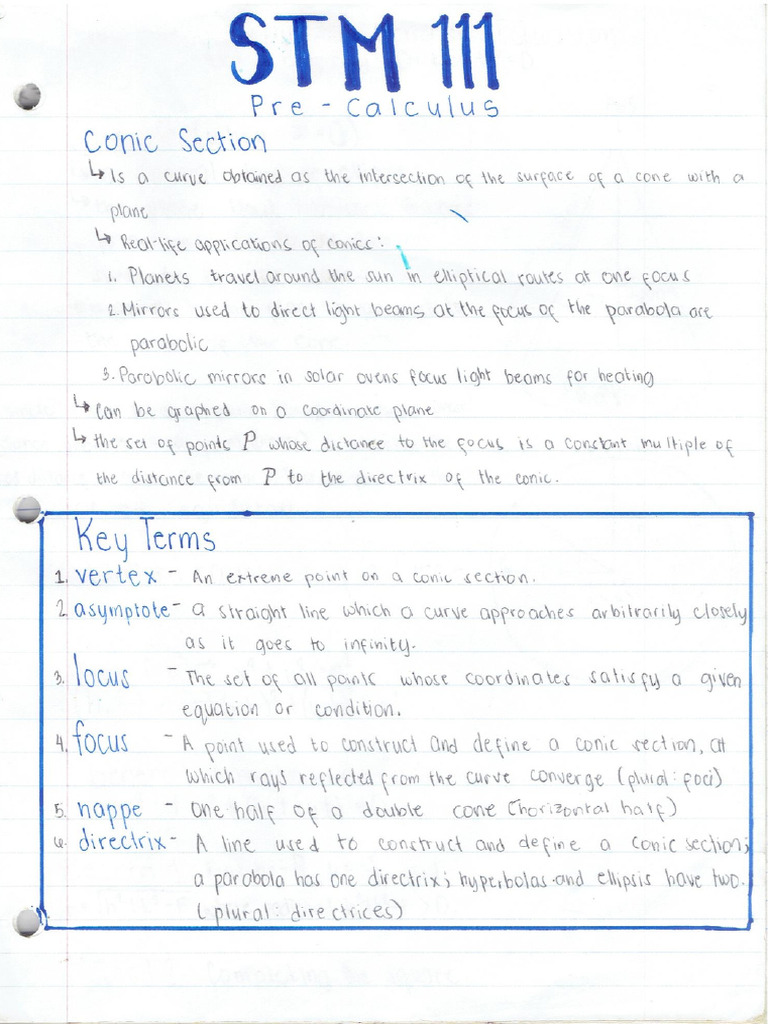 STM 111
Pre-Calculus
Conic Section
↳ Is a curve obtained as the intersection of the surface of a cone with a
plane
↳ Real-life applications of conics:
1. Planets travel around the sun in elliptical routes at one focus
2. Mirrors used to direct light beams at the focus of the parabola are
parabolic
3. Parabolic mirrors in solar ovens focus light beams for heating
↳ Can be graphed on a coordinate plane
↳ the set of points P whose distance to the focus is a constant multiple of
the distance from P to the directrix of the conic.
Key Terms
1. vertex - An extreme point on a conic section.
2. asymptote - a straight line which a curve approaches arbitrarily closely
as it goes to infinity.
3. locus - The set of all points whose coordinates satisfy a given
equation or condition.
4. focus - A point used to construct and define a conic section, at
which rays reflected from the curve converge (plural: foci)
5. nappe - One half of a double cone (horizontal half)
6. directrix - A line used to construct and define a conic section;
a parabola has one directrix; hyperbolas and ellipsis have two.
(plural: directrices)